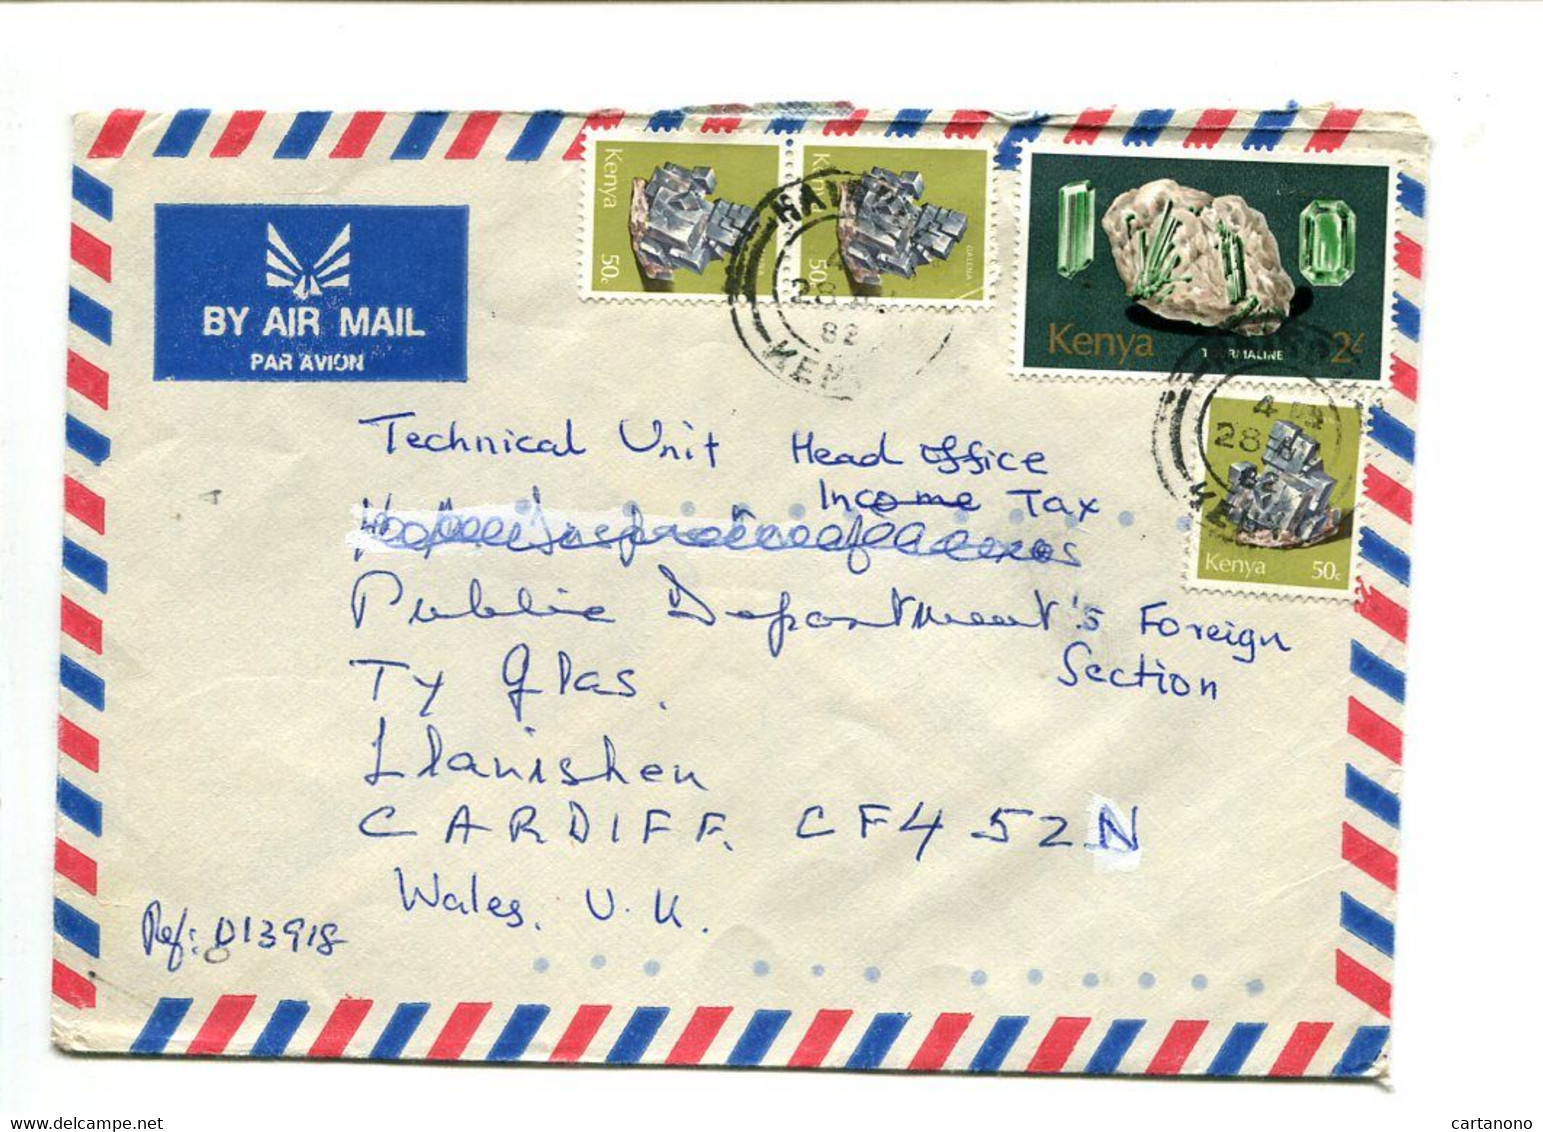 BY AIR MAIL
PAR AVION
Kenya
50c
Kenya
GALENA
50c
Kenya
TOURMALINE
2/-
NAIROBI
4
28
82
KENYA
4
28
82
KENYA
Kenya 50c
Technical Unit Head office
Income Tax
Public Department's Foreign
Section
Ty Glas.
Llanishen
CARDIFF. CF4 52N
Wales. U.K.
Ref: D13918
cartanono